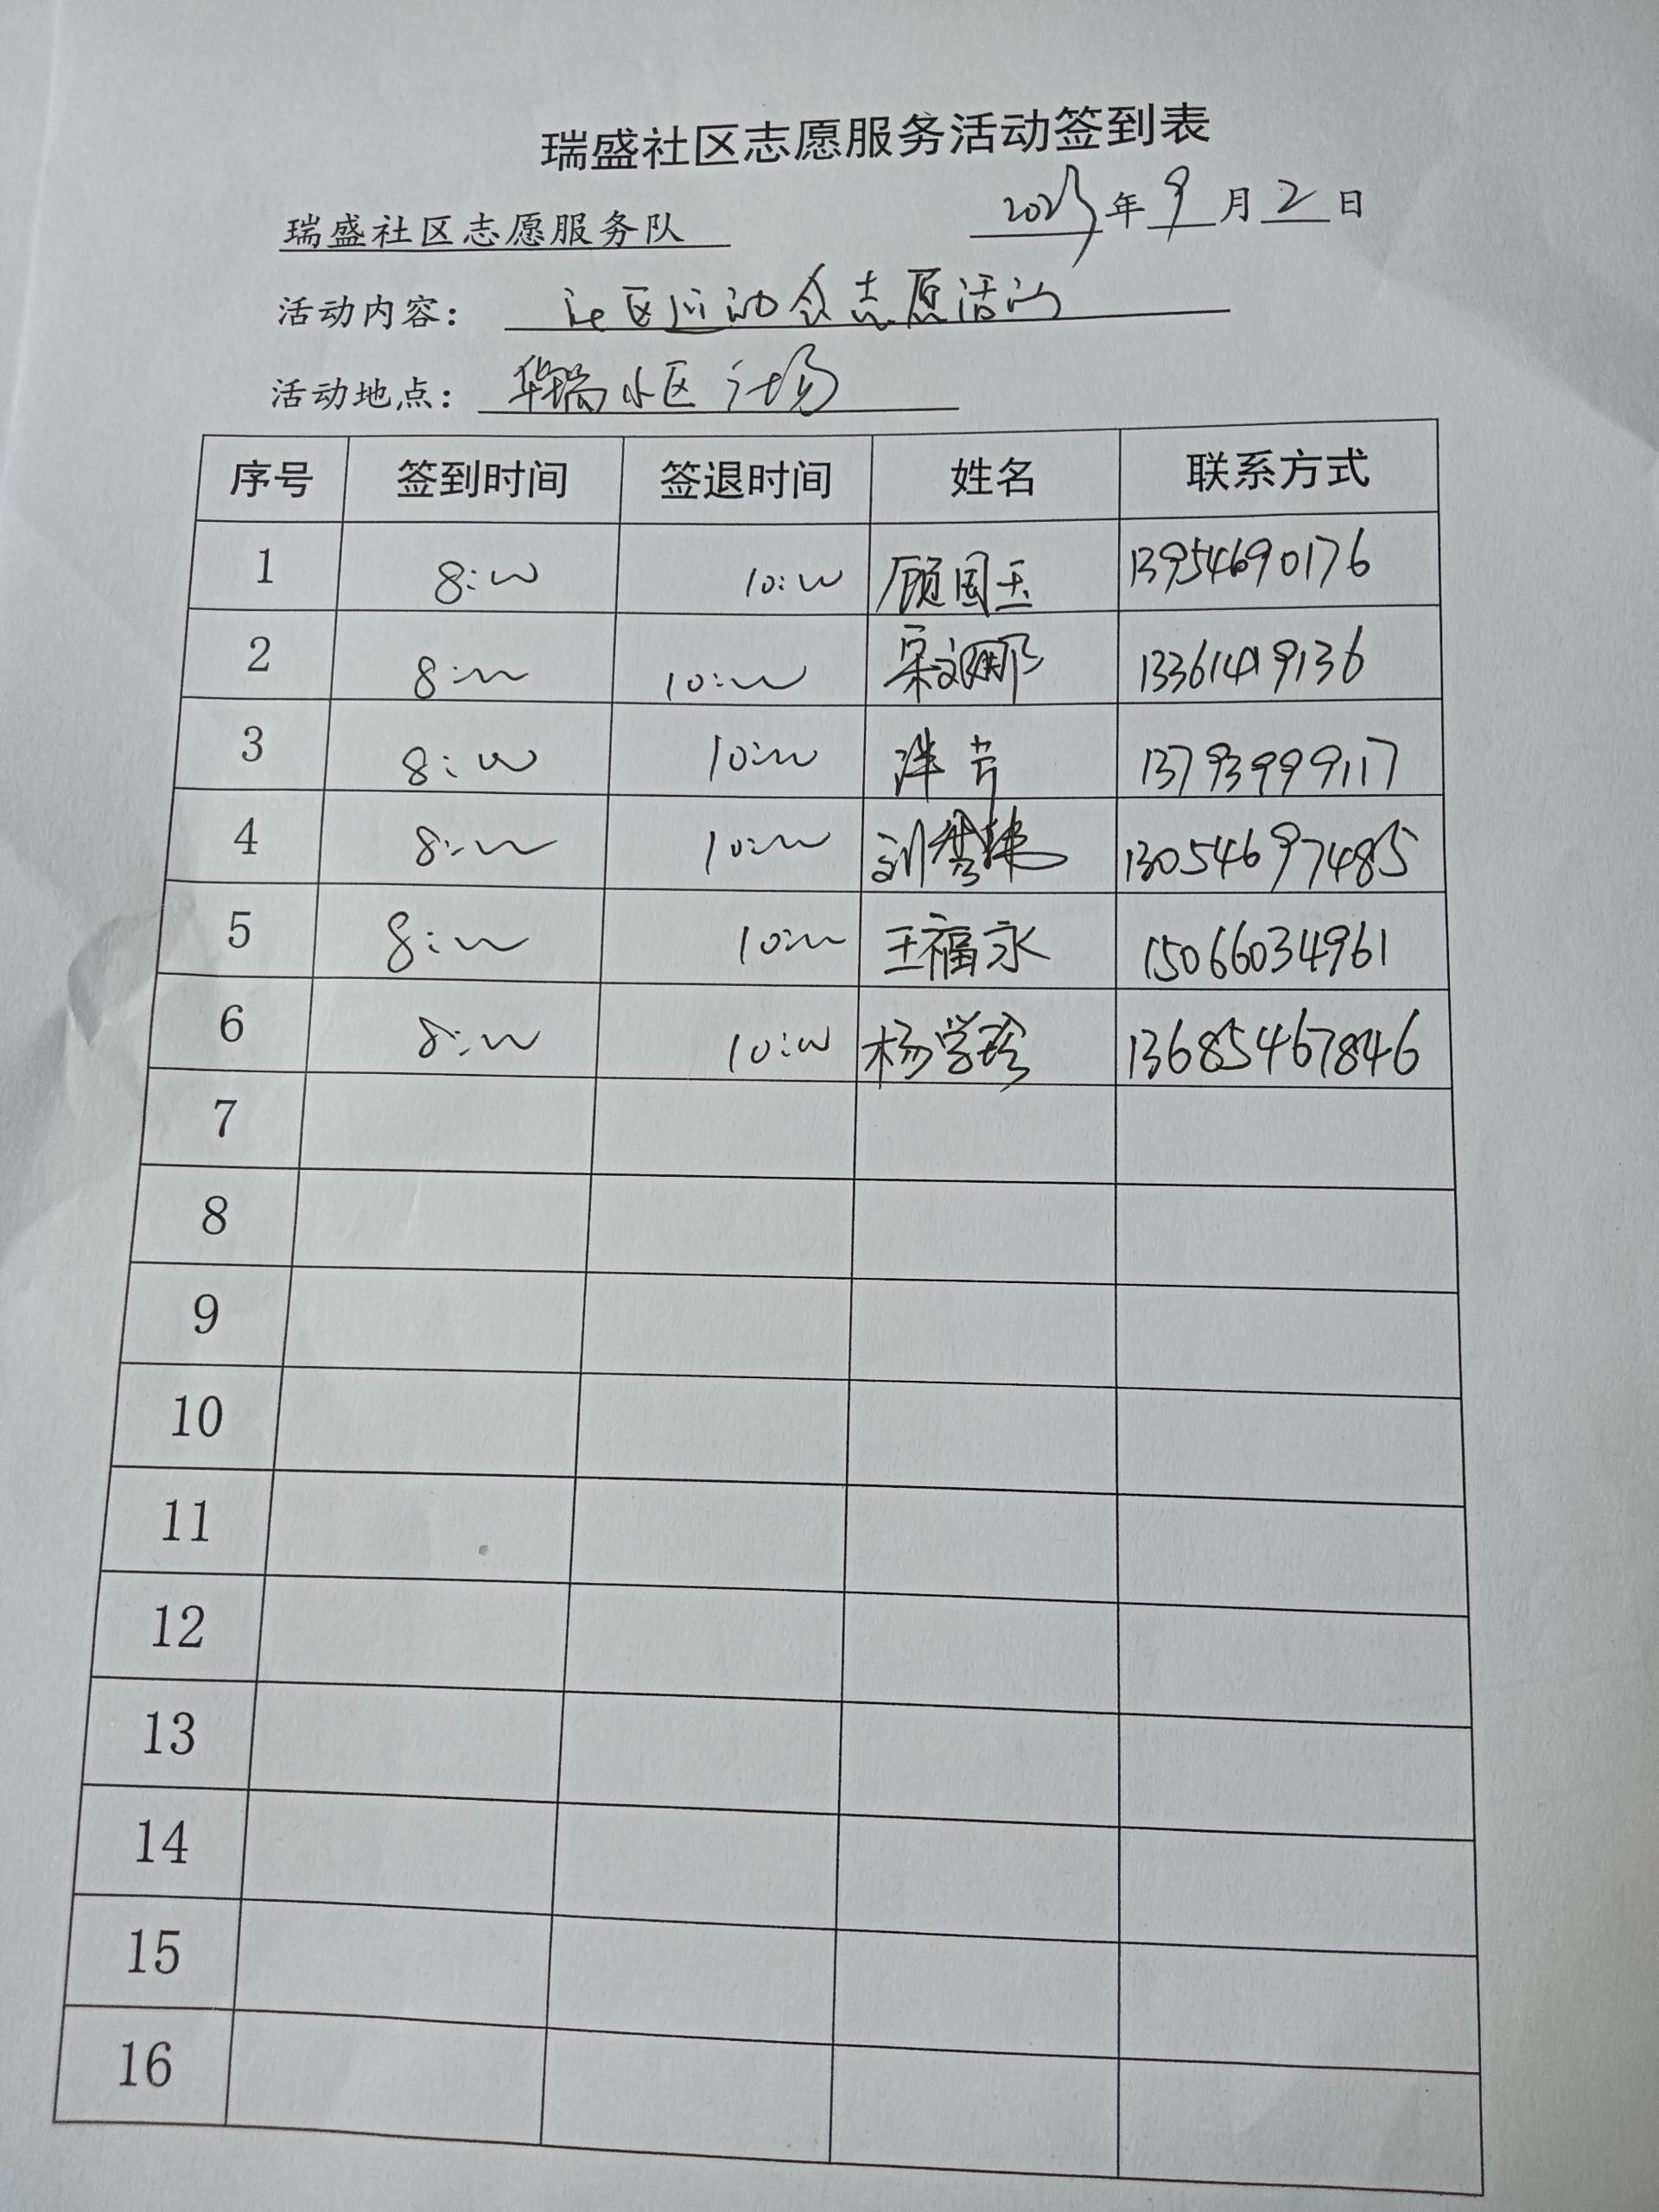 瑞盛社区志愿服务活动签到表
瑞盛社区志愿服务队 2023年9月2日
活动内容： 社区运动会志愿活动
活动地点： 华瑞小区广场
序号 签到时间 签退时间 姓名 联系方式
1 8:00 10:00 顾国玉 13954690176
2 8:00 10:00 13361419136
3 8:00 10:00 13793999117
4 8:00 10:00 13054697485
5 8:00 10:00 王福永 15066034961
6 8:00 10:00 杨学珍 13685467846
7
8
9
10
11
12
13
14
15
16